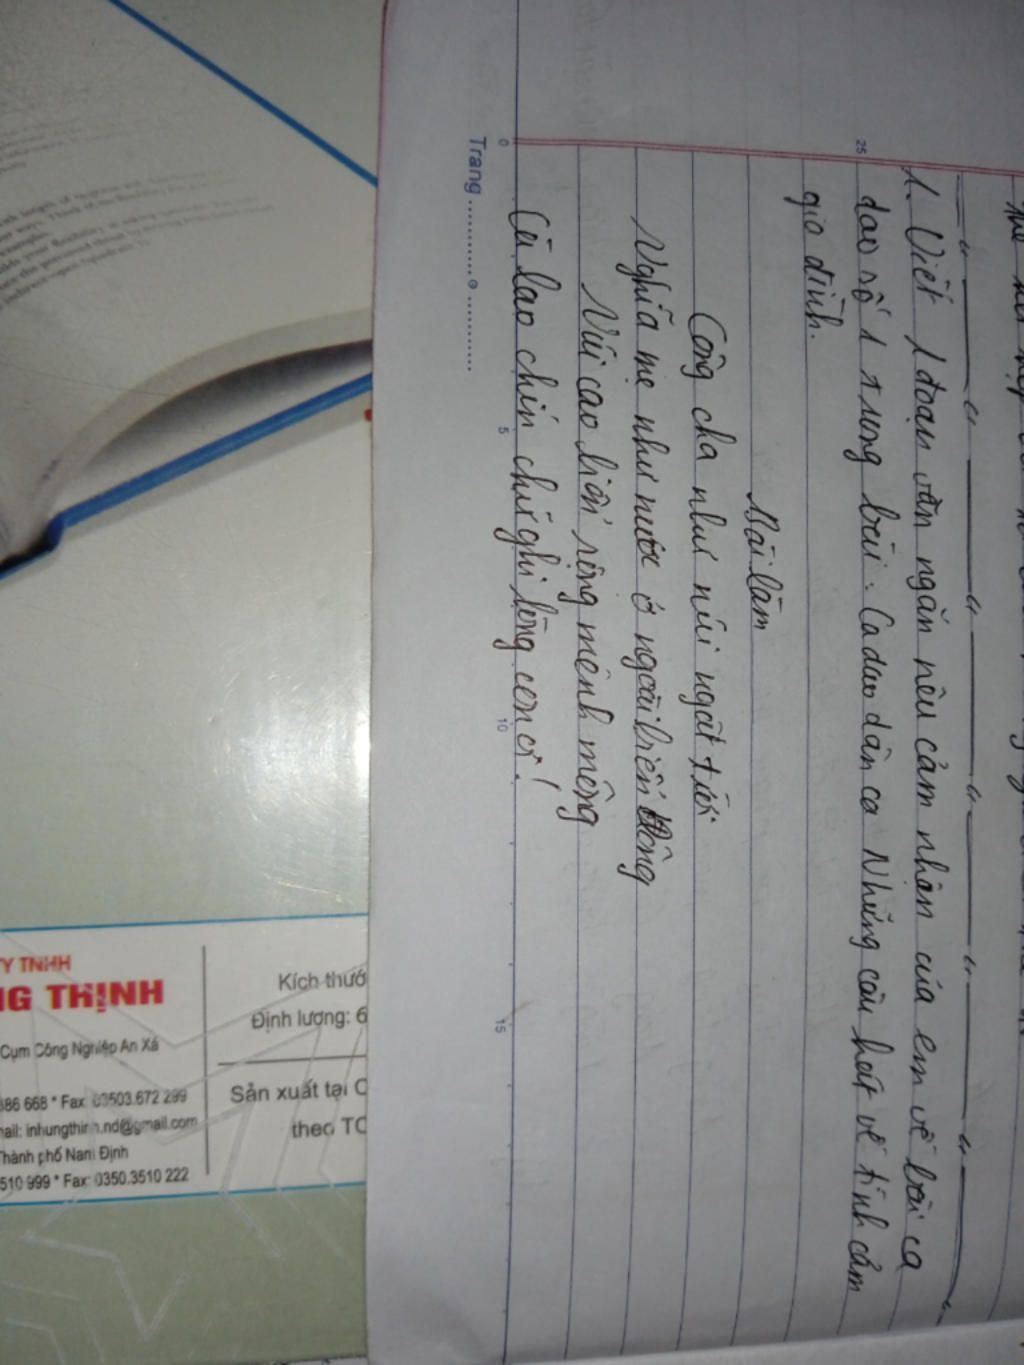 1. Viết 1 đoạn văn ngắn nêu cảm nhận của em về bài ca
dao số 1 trong bài: Ca dao dân ca Những câu hát về tình cảm
gia đình.
Bài làm
Công cha như núi ngất trời
Nghĩa mẹ như nước ở ngoài biển đông
Núi cao biển rộng mênh mông
Cù lao chín chữ ghi lòng con ơi!
0
5
10
15
25
Trang
Y TNHH
NG THỊNH
Cụm Công Nghiệp An Xá
386 668 * Fax: 03503.672 299
mail: inhungthinh.nd@gmail.com
Thành phố Nam Định
510 999 * Fax: 0350.3510 222
Kích thướ
Định lượng: 6
Sản xuất tại C
theo TC